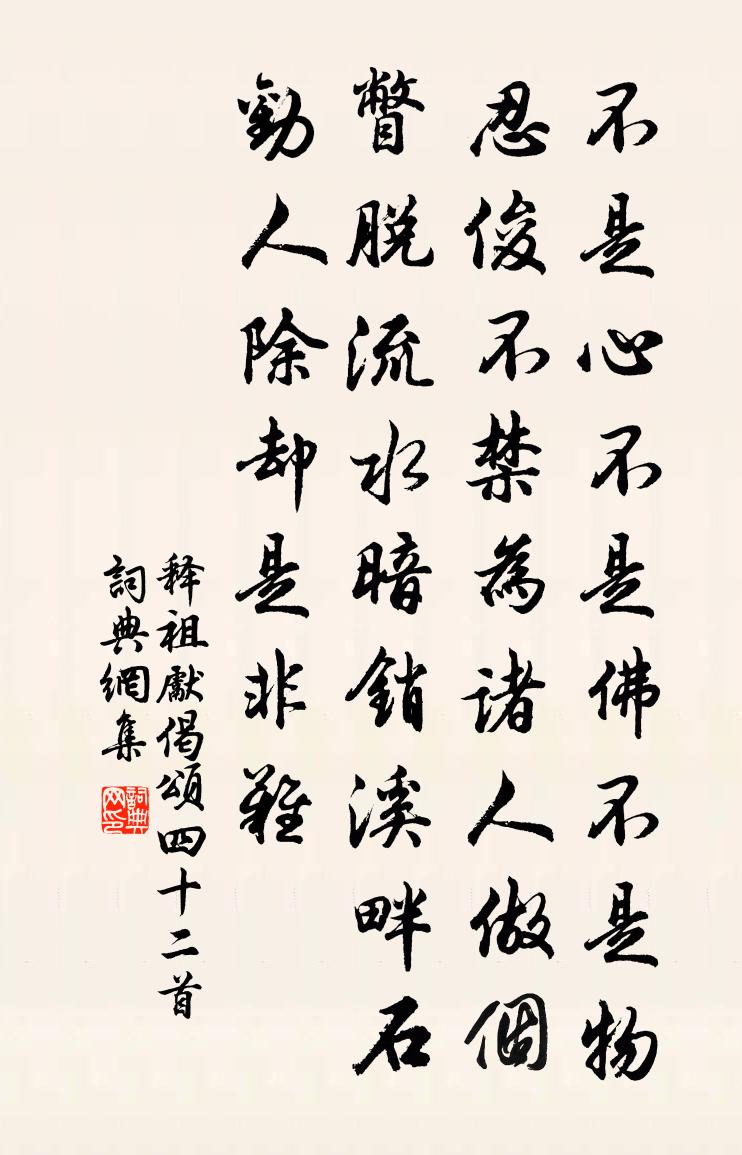 不是心不是佛不是物
忍俊不禁為諸人做個
瞥脱流水暗銷溪畔石
勸人除却是非難
释祖獻偈頌四十二首
詞典網集
詞典网印